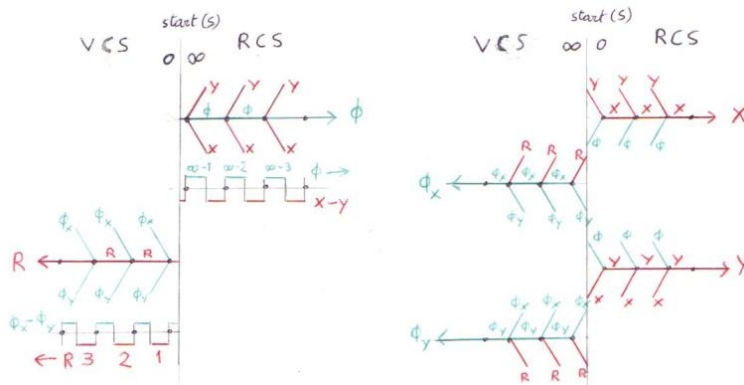 start (s)
VCS
RCS
0 ∞
Y Y Y
ϕ ϕ
ϕ
X X X
∞-1 ∞-2 ∞-3
ϕ →
X-Y
ϕx ϕx ϕx
R
R R
ϕy ϕy ϕy
ϕx-ϕy
← R 3 2 1
start (s)
VCS
RCS
∞ 0
Y Y Y
X X X
X
ϕ ϕ ϕ
R R R
ϕx
ϕx ϕx ϕx
ϕy ϕy ϕy
ϕ ϕ ϕ
Y Y Y
Y
X X X
ϕx ϕx ϕx
ϕy
ϕy ϕy ϕy
R R R